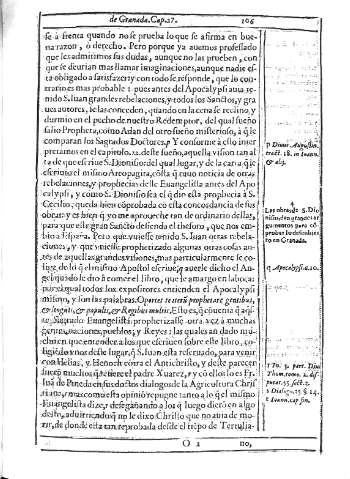 de Granada. Cap. 17. 106
se à frenta quando no se prueba lo que se afirma en bue
na razon, ò derecho. Pero porque ya auemos professado
que les admitimos sus dudas, aunque no las prueben, con
que se deurian mas llamar imaginaciones, aunque nadie es-
tà obligado a satisfazer y con todo se responde, que lo con-
trario es mas probable: pues antes del Apocalypsi auia te-
nido S. Iuan grandes rebelaciones, y todos los Sanctos, y gra
ues autores, se las conceden, quando en la cena se reclinò, y
durmio en el pecho de nuestro Redemptor, del qual sueño
salio Propheta, como Adan del otro sueño misterioso, à q̃ le
comparan los Sagrados Doctores, P Y conforme à esto inter
pretamos en el capitulo. 12. deste sueño, aquella vision tan al
ta de que escriue S. Dionisio: del qual lugar, y de la carta q̃ le
escriuio el mismo Areopagita, cõsta q̃ tuuo noticia de otras
rebelaciones, y prophecias deste Euangelista antes del Apo
calypsi, y como S. Dionisio sea el q̃ dio esta prophecia à S.
Cecilio, queda bien cõprobada cõ esta concordancia de sus
obras: y es bien q̃ yo me aproueche tan de ordinario dellas,
para que este gran Sancto defienda el thesoro, que nos em-
bio a España. Pero que vuiesse tenido S. Iuan otras rebela-
ciones, y que vuiesse prophetizado algunas otras cosas an-
tes de aquellas grandes visiones, mas particularmente se co-
lige de lo q̃ el mismo Apostol escriue, q̃ auerle dicho el An-
gel quãdo le dio à comer el libro, que le amargò en la boca:
por el qual todos los expositores entienden el Apocalypsi
mismo, y son las palabras. Oportet te iterũ prophetare gentibus,
& linguis, & populis, & Regibus multis. Esto es, q̃ conuenia q̃ aq̃l
Sagrado Euangelista prophetizasse otra vez à muchas
gentes, naciones, pueblos, y Reyes: las quales an dado mu-
chos en que entender a los que escriuen sobre este libro, co-
ligiẽdo vnos deste lugar, q̃ S. Iuan esta reseruado, para venir
con Helias, y Henoch contra el Antichristo, y deste parecer
fuerõ muchos q̃ refiere el padre Xuarez, r y cõ ellos lo es Fr.
Iuã de Pineda en sus doctos dialogos de la Agricultura Chris
tiana, mas como esta opinió repugne tanto a lo q̃ el mismo
Euangelista dize, desegañando a los q̃ luego dierõ en algo
desto, aduirtiendo q̃ no le dixo Christo que no auia de mo-
rir, de donde esta tan reprobada desde el tiẽpo de Tertulia-
O 2 no,
p Diuus Augustin.
tract. 18. in Ioann.
& alij.
4.
Las obras de S. Dio
nisio, son grandes ar
gumentos para cõ-
probar los hallados
en Granada.
q Apocalyps. 10.
r To. 2. 3. part. Diui
Thom. tomo. 2. dis-
putat. 55. sect. 2.
s Dialog. 25. § 14.
t Ioann. cap. fin.